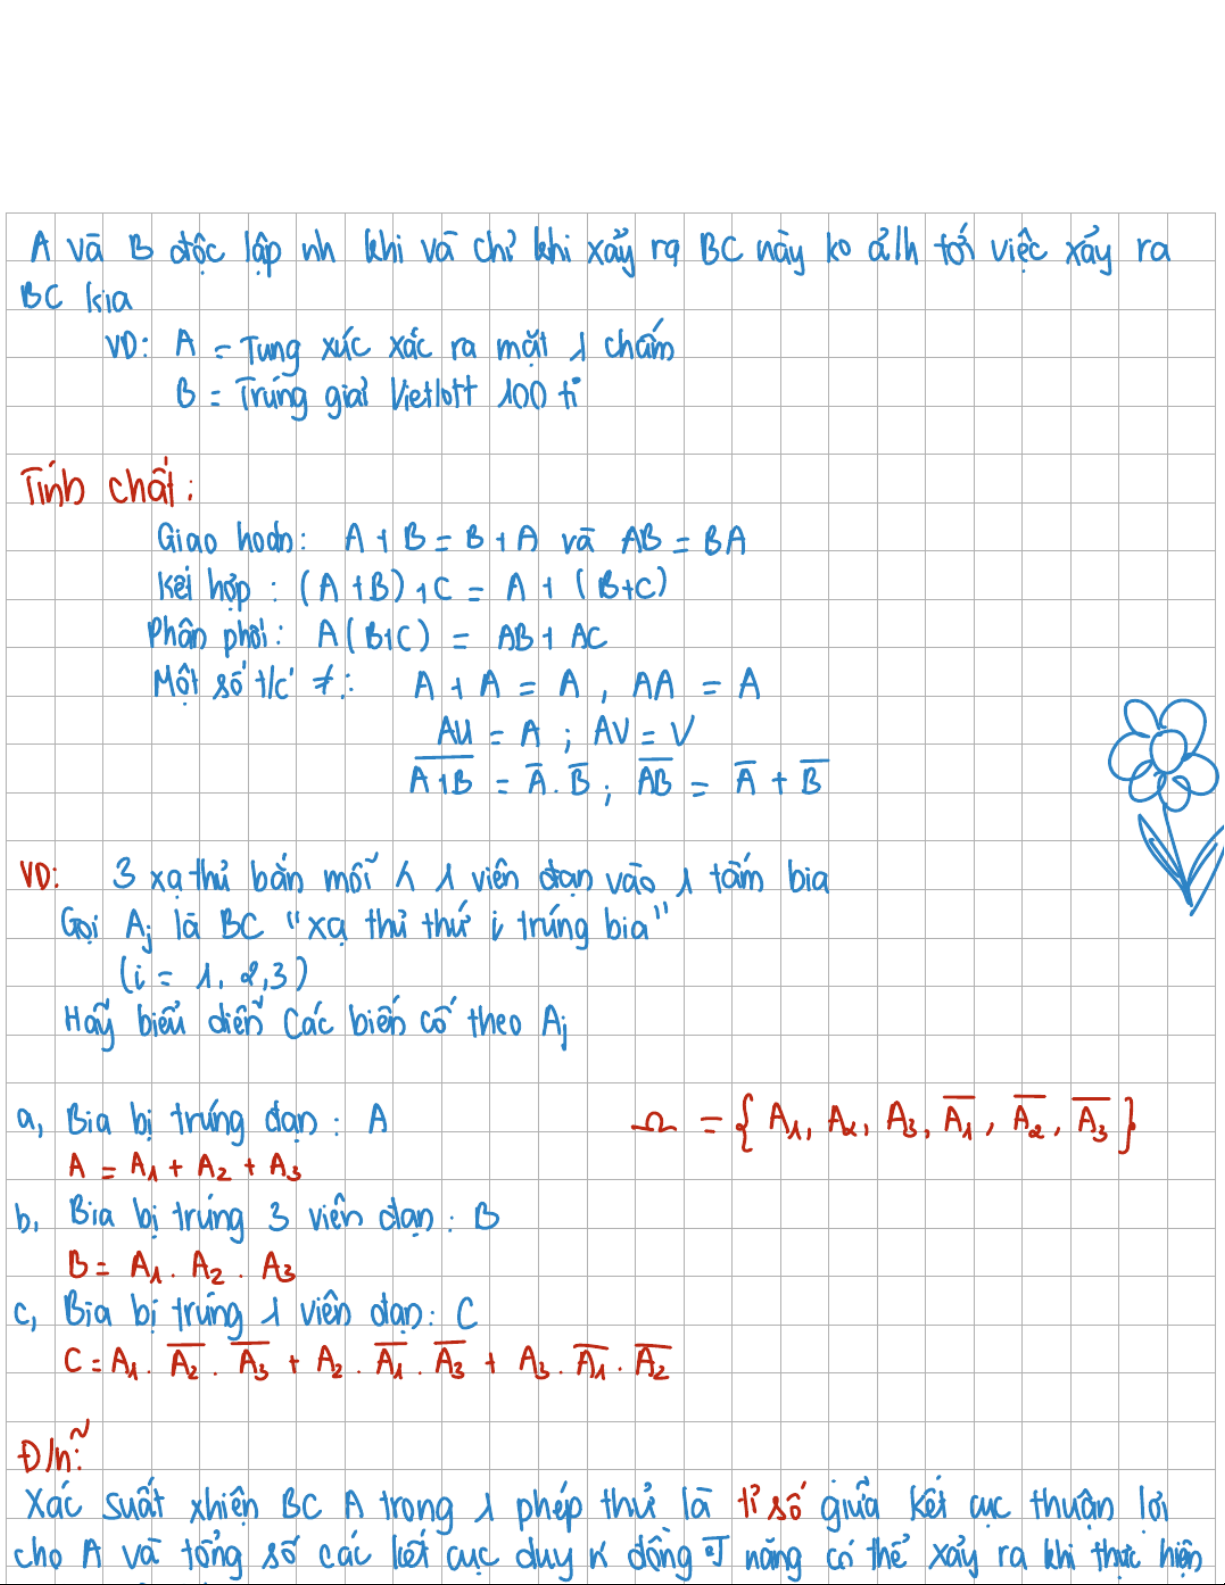 A và B độc lập nh khi và chỉ khi xảy ra BC này ko ảlh tới việc xảy ra
BC kia
VD: A = Tung xúc xắc ra mặt 1 chấm
B = Trúng giải Vietlott 100 tỉ
Tính chất:
Giao hoán: A + B = B + A và AB = BA
Kết hợp : (A+B)+C = A + (B+C)
Phân phối: A(B+C) = AB + AC
Một số t/c ≠: A + A = A , AA = A
AU = A ; AV = V
\overline{A+B} = \overline{A}.\overline{B} ; \overline{AB} = \overline{A} + \overline{B}
VD: 3 xạ thủ bắn mỗi 1 viên đạn vào 1 tấm bia
Gọi Ai là BC "xạ thủ thứ i trúng bia"
(i = 1, 2,3)
Hãy biểu diễn Các biến cố theo Ai
a, Bia bị trúng đạn : A
Ω = { A₁, A₂, A₃, \overline{A₁}, \overline{A₂}, \overline{A₃} }
A = A₁ + A₂ + A₃
b, Bia bị trúng 3 viên đạn : B
B = A₁ . A₂ . A₃
c, Bia bị trúng 1 viên đạn: C
C = A₁ . \overline{A₂} . \overline{A₃} + A₂ . \overline{A₁} . \overline{A₃} + A₃ . \overline{A₁} . \overline{A₂}
Đ/n:~
Xác suất xhiện BC A trong 1 phép thử là tỉ số giữa kết cục thuận lợi
cho A và tổng số các kết cục duy n đồng năng có thể xảy ra khi thực hiện